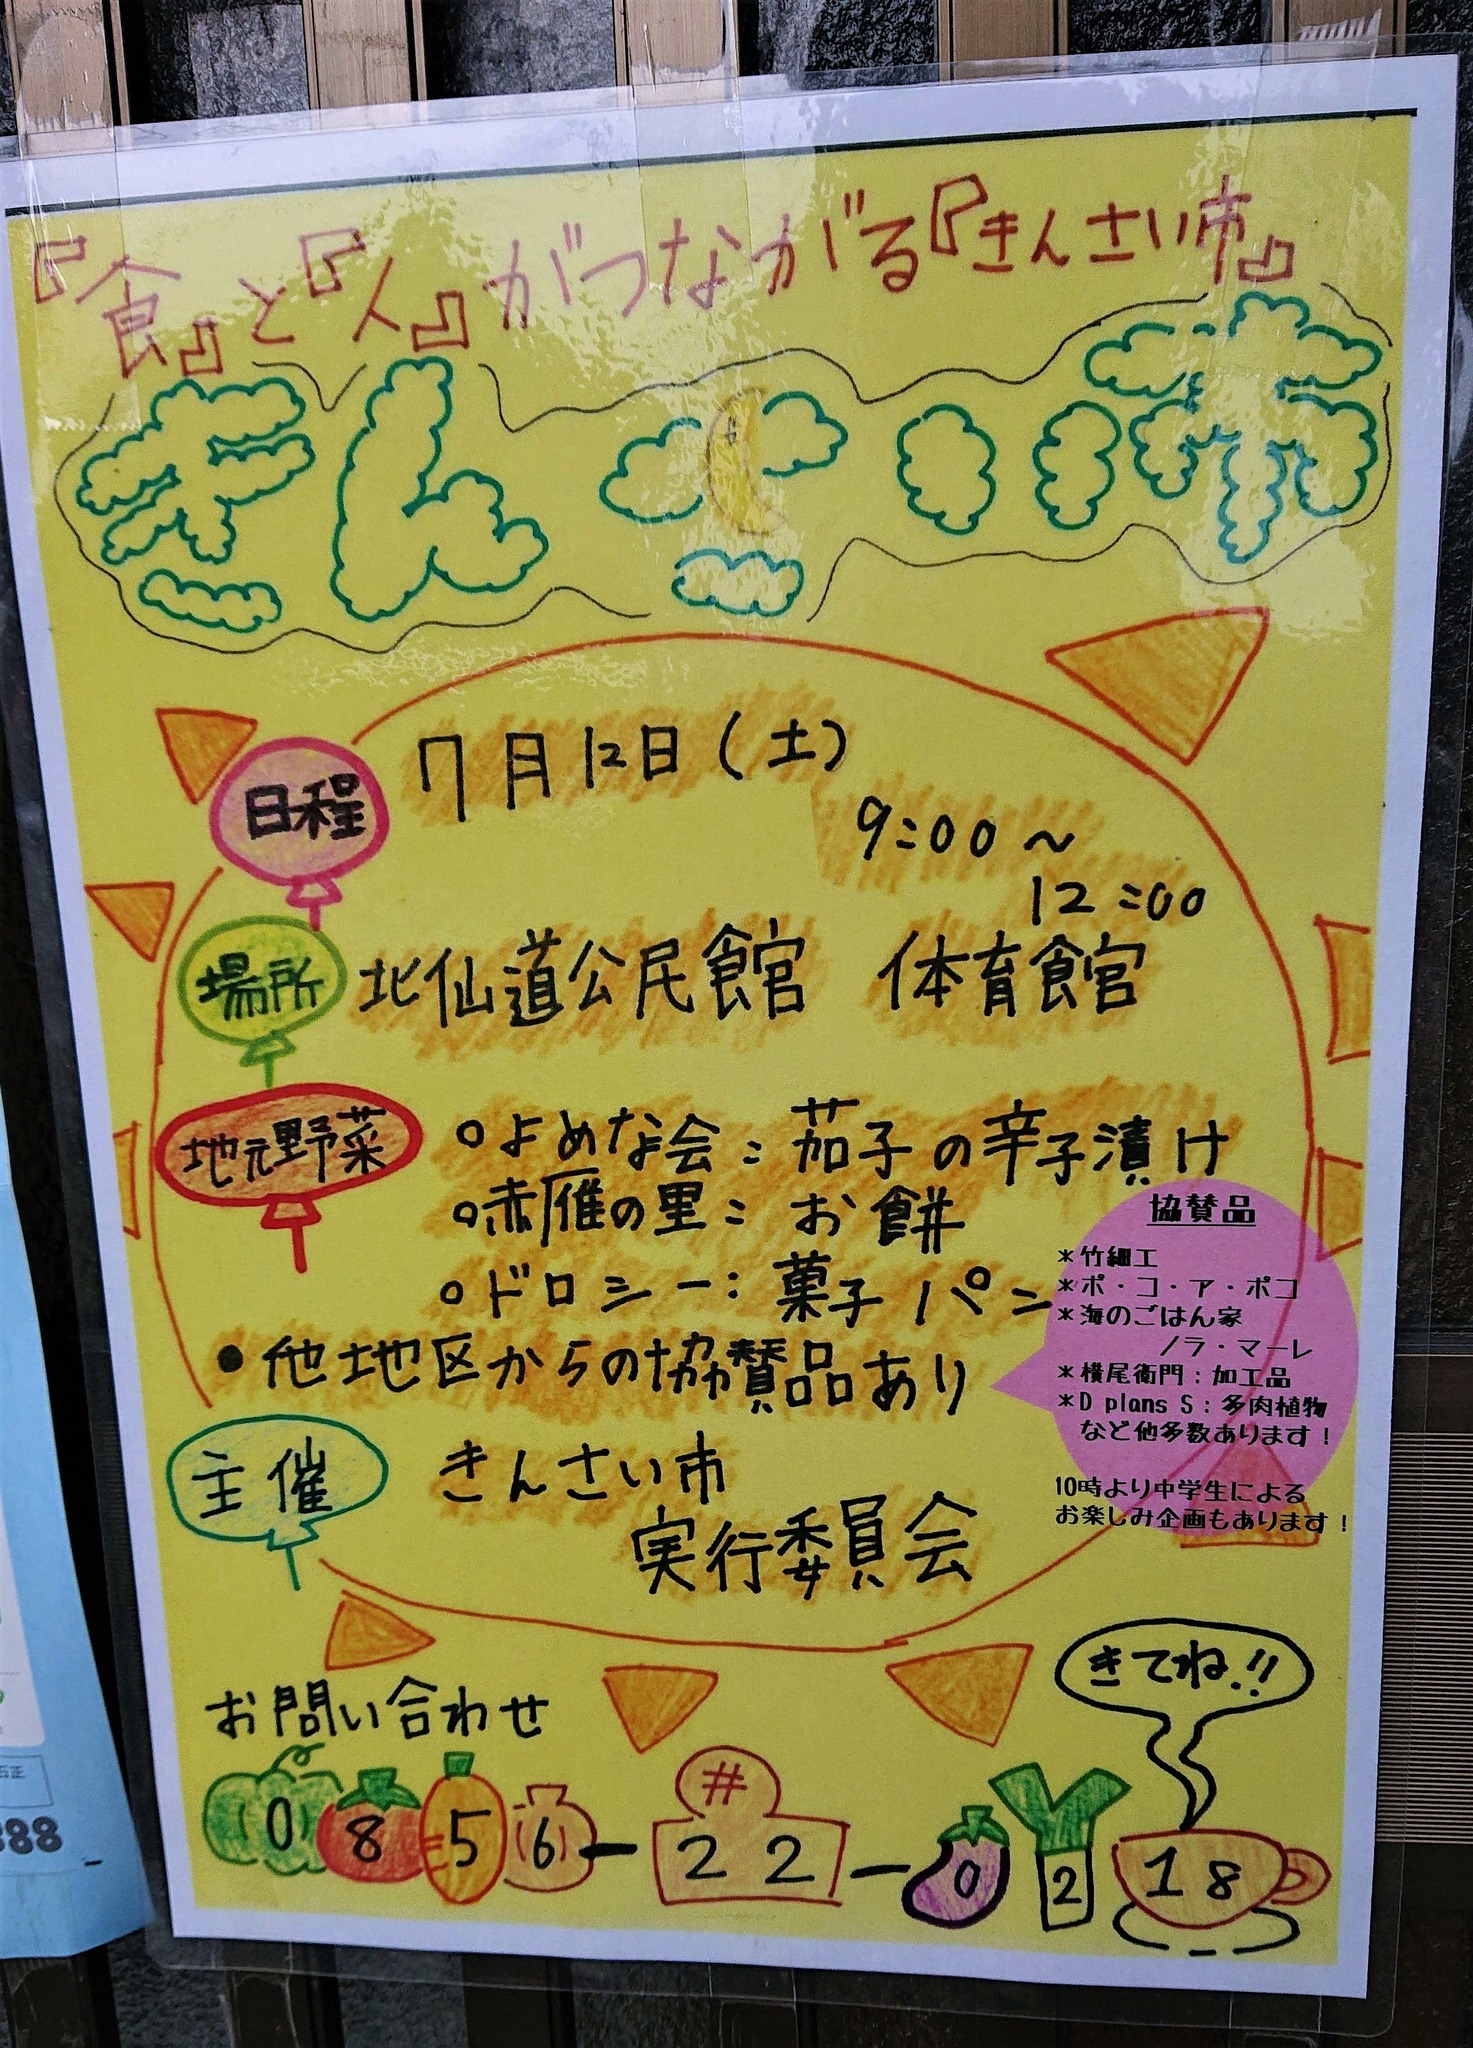 『食』と『人』がつながる『きんさい市』
きんさい市
日程 7月12日(土)
9:00〜
12:00
場所 北仙道公民館 体育館
地元野菜 ○よめな会:茄子の辛子漬け
○赤雁の里:お餅
○ドロシー:菓子パン
●他地区からの協賛品あり
協賛品
*竹細工
*ポ・コ・ア・ポコ
*海のごはん家
ノラ・マーレ
*横尾衛門:加工品
*D plans S:多肉植物
など他多数あります!
10時より中学生による
お楽しみ企画もあります!
主催 きんさい市
実行委員会
きてね!!
お問い合わせ
0856-22-0218